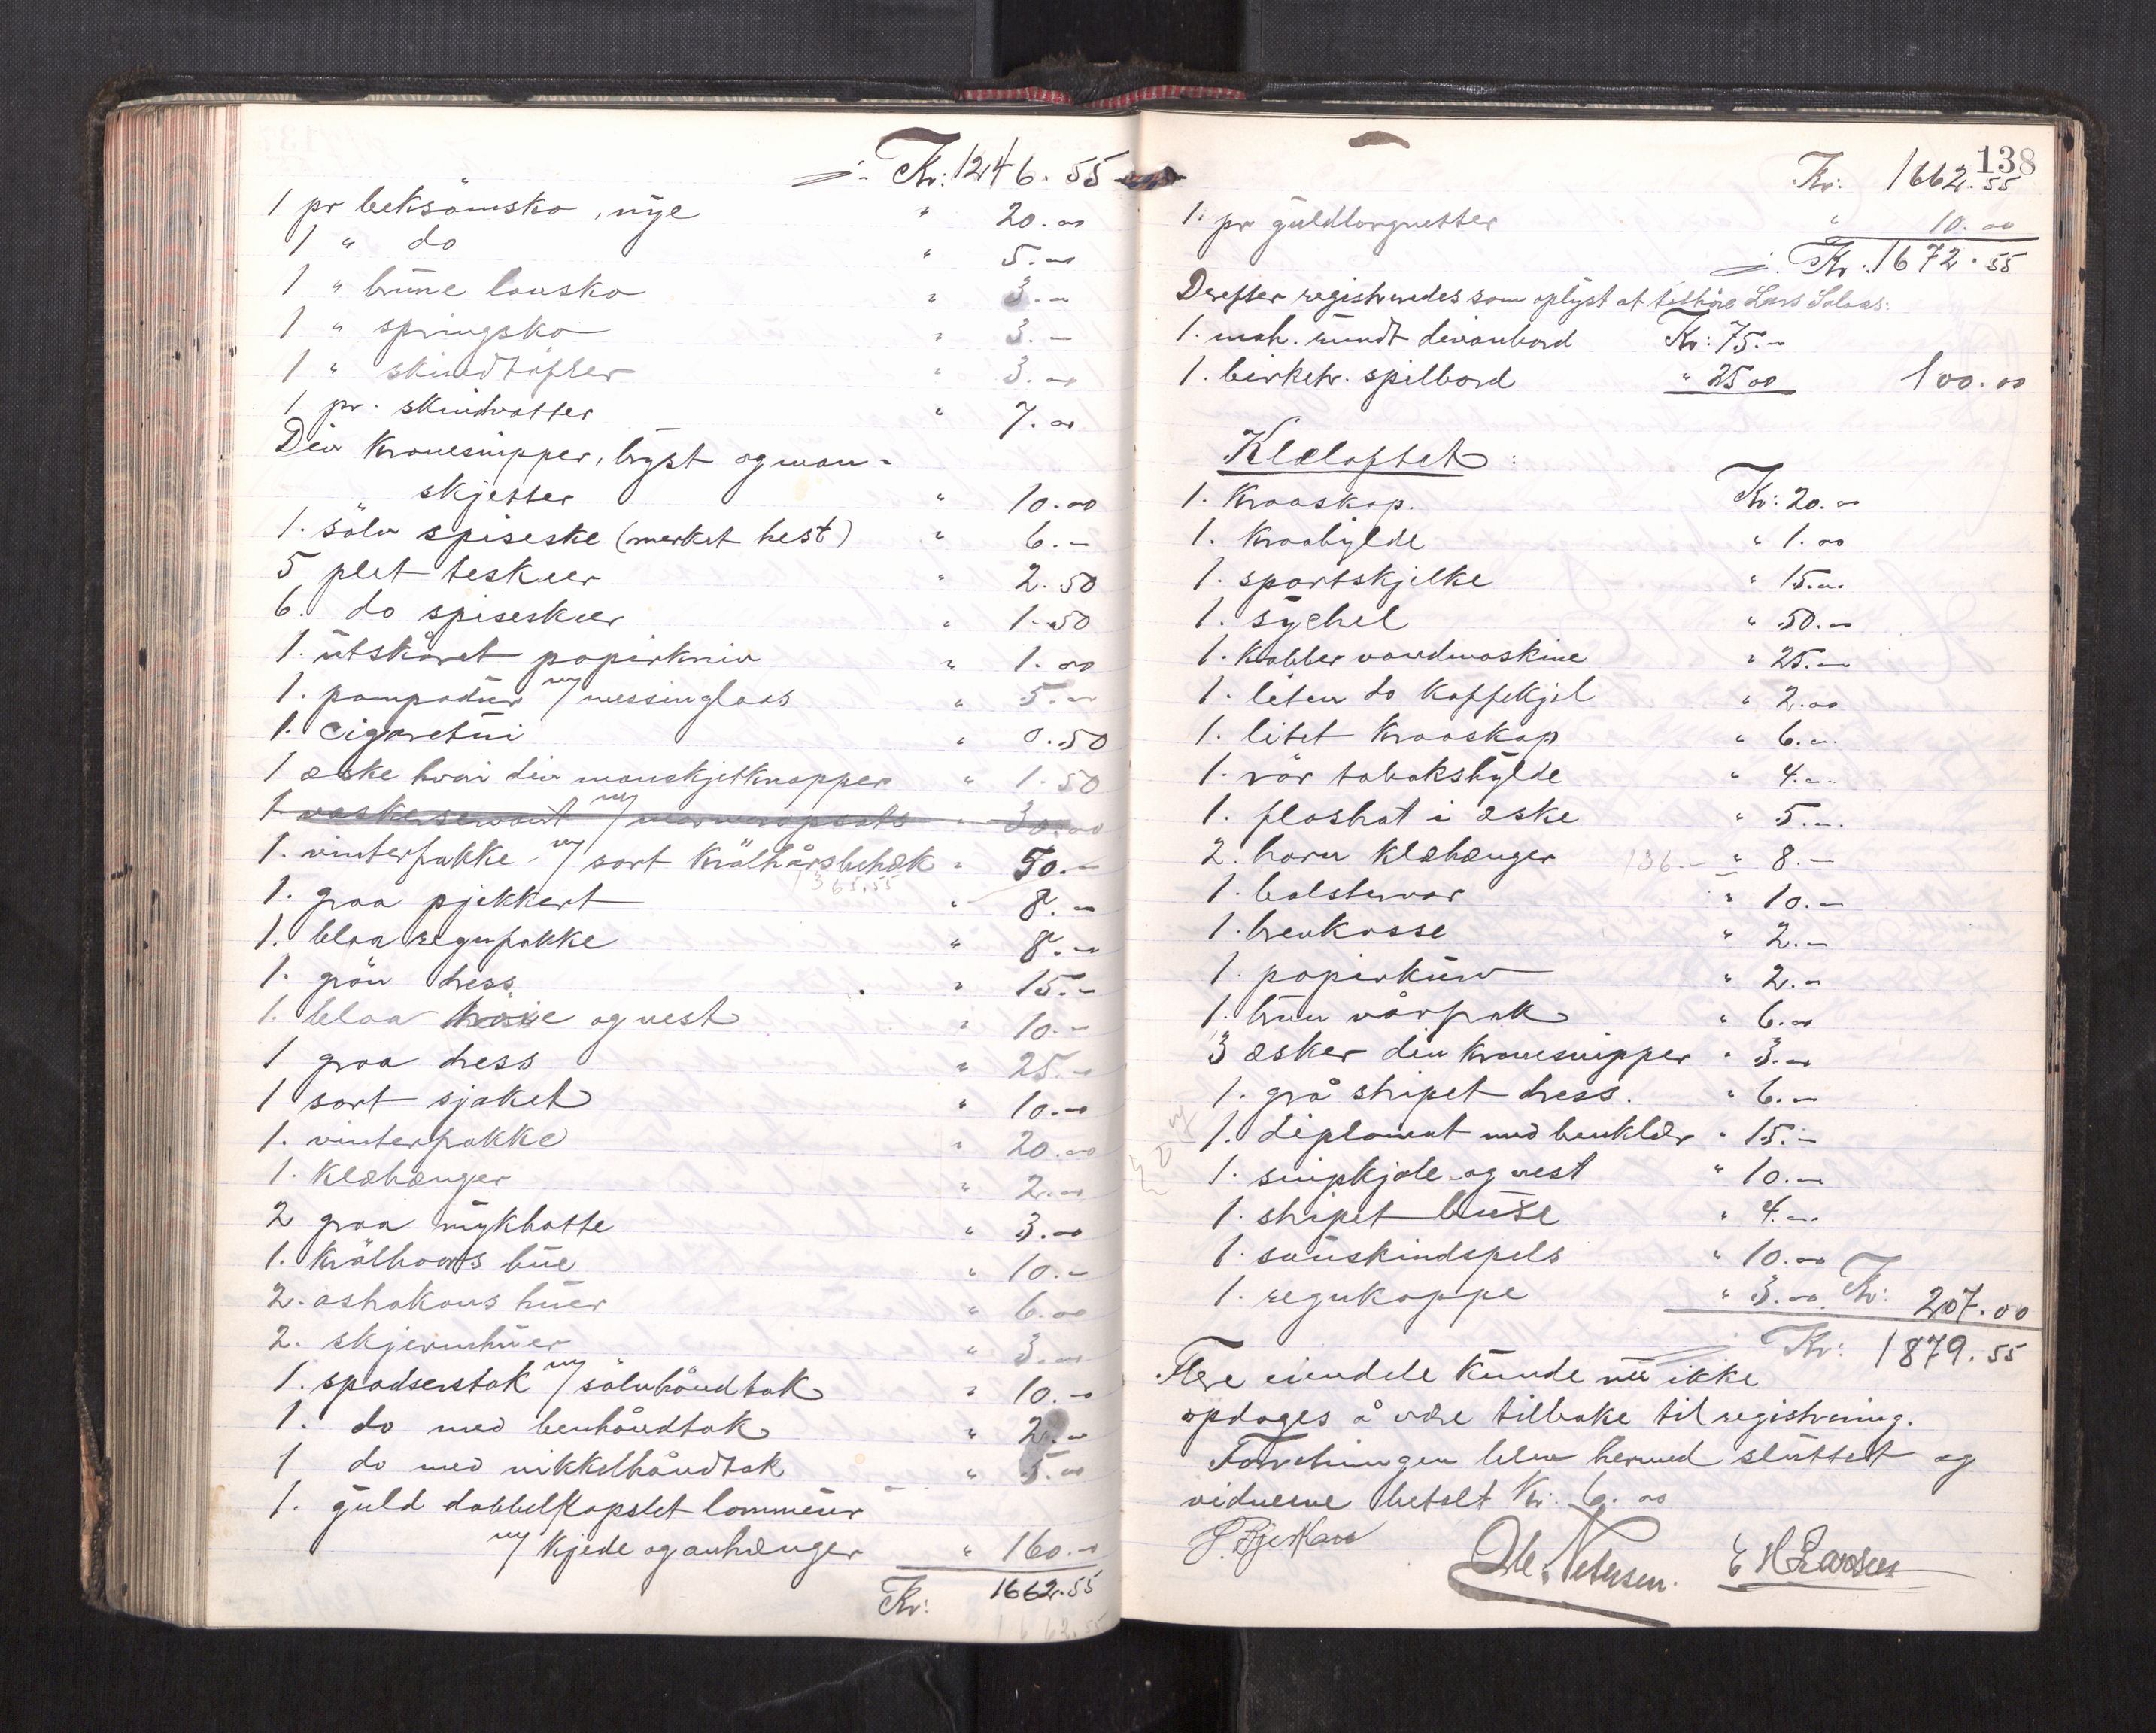 Kr: 1246.55
1 pr beksömsko, nye " 20.00
1 " do " 5.00
1 " brune lausko " 3.–
1 " springsko " 3.–
1 " skindtøfler " 3.00
1 pr. skindvotter " 7.00
Div kravesnipper, bryst og man-
skjetter " 10.00
1. sölv spiseske (merket hest) " 6.–
5 plet teskeer " 2.50
6. do spiseskeer " 1.50
1. utskåret papirkniv " 1.00
1. pompadur m/ messinglaas " 5.–
1. cigaretui " 0.50
1 æske hvori div manskjetknapper " 1.50
1 vaskeservant m/ marmoropsats " 30.00
1. vinterfrakke m/ sort krølhårsbesæk " 50.–
1365.55
1. graa pjekkert " 8.–
1. blaa regnfrakke " 8.–
1. grön dress " 15.–
1. blaa trøie og vest " 10.–
1 graa dress " 25.–
1 sort sjaket " 10.00
1. vinterfrakke " 20.00
1. klæhænger " 2.00
2 graa mykhatte " 3.00
1. krølhaars hue " 10.–
2. astrakans huer " 6.00
2. skjermhuer " 3.00
1. spadserstok m/ sølvhåndtak " 10.–
1. do med benhåndtak " 2.–
1 do med nikkelhåndtak " 5.00
1. guld dobbelkapslet lommeur
m/ kjede og anhænger " 160.–
Kr: 1662.55
1662.55
138
Kr: 1662.55
1. pr guldlorgnetter " 10.00
Kr: 1672.55
Derefter registreredes som oplyst at tilhöre Lars
1. mah. rundt divanbord Kr: 75.–
1. birketr. spilbord " 25 00 100.00
Klæloftet:
1. Kraaskap. Kr: 20.00
1. Kraahylde " 1.00
1. sportskjelke " 15.00
1. sychel " 50.–
1. kobber vandmaskine " 25.–
1. liten do kaffekjel " 2.00
1. litet Kraaskap " 6.–
1. rör tobakshylde " 4.–
1. floshat i æske " 5.–
2. horn klæhænger 136.– " 8.–
1. bolstervar " 10.–
1. brevkasse " 2.–
1. papirkurv " 2.–
1. brun vårfrak " 6.00
3 æsker div kravesnipper " 3.00
1. grå stripet dress. " 6.–
1. diplomat med benklær " 15.–
1. snipkjole og vest " 10.–
1. stripet buxe " 4.–
1. saueskindspels " 10.00
1. regnkappe " 3.00 Kr: 207.00
Kr: 1879.55
Flere eiendele kunde nu ikke
opdages å være tilbake til registrering.
Forretningen blev hermed sluttet og
vidnerne betalt Kr. 6.00
Ole Petersen. E H Larsen